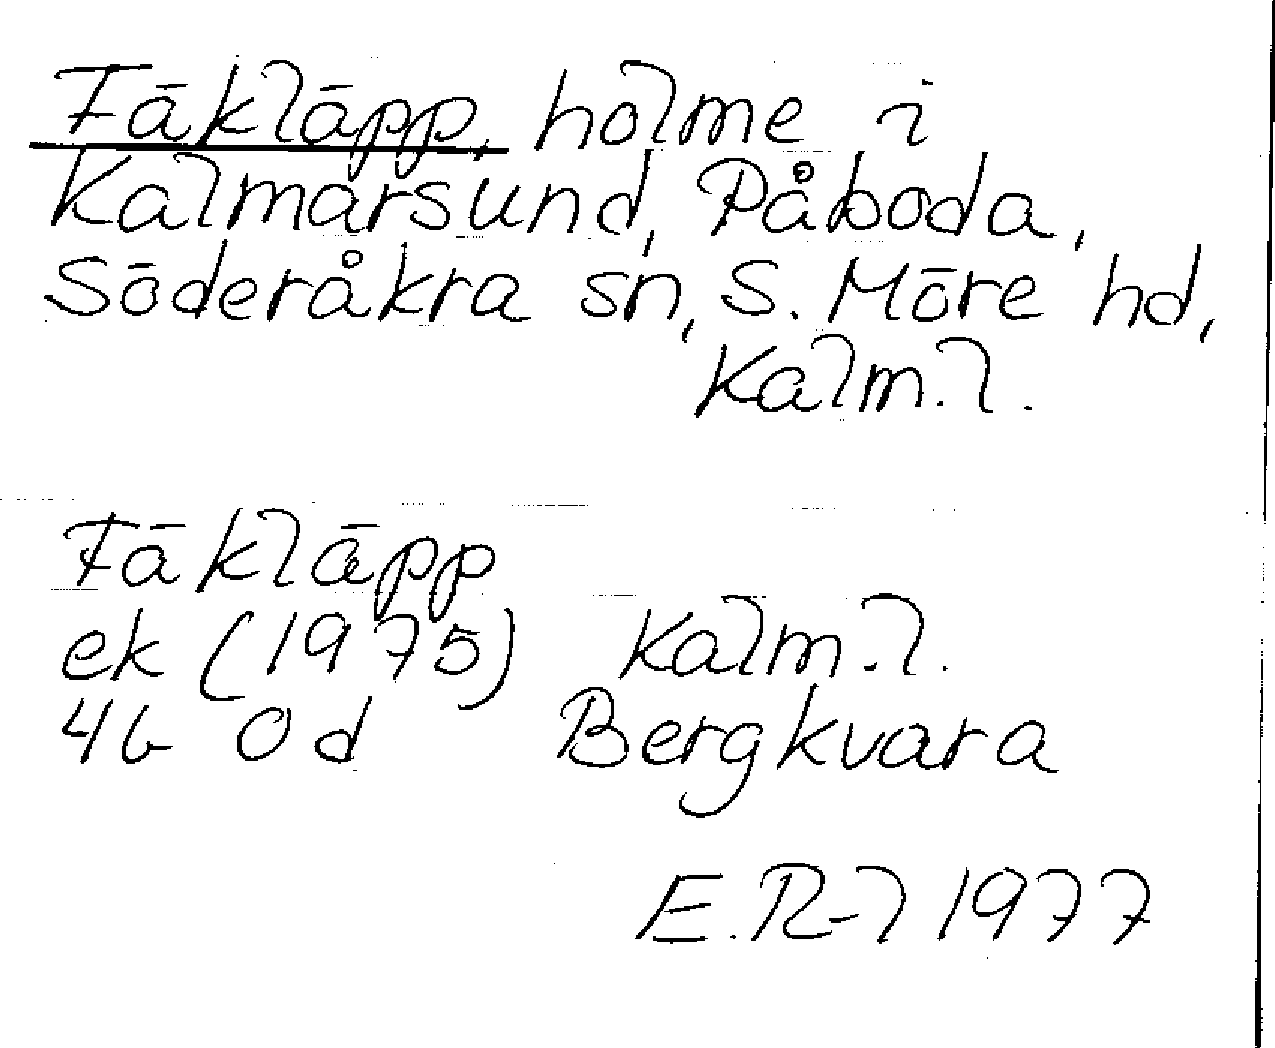 Fäkläpp, holme i
Kalmarsund, Påboda,
Söderåkra sn, S. Möre hd,
Kalm. l.
Fäkläpp
ek (1975) Kalm. l.
4G 0d Bergkvara
E. R-l 1977